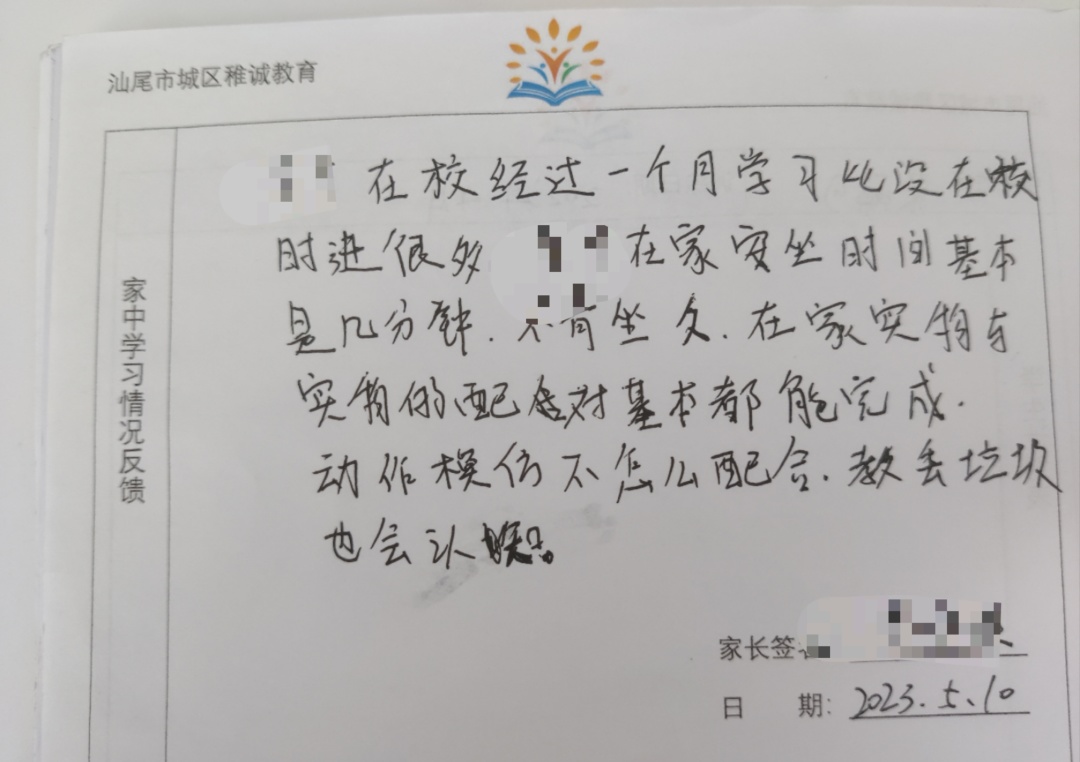 汕尾市城区稚诚教育
家中学习情况反馈
在校经过一个月学习比没在校
时进很多 在家安坐时间基本
是几分钟.不肯坐久.在家实物与
实物的配合对基本都能完成.
动作模仿不怎么配合.教丢垃圾
也会认
家长签
日 期: 2023.5.10